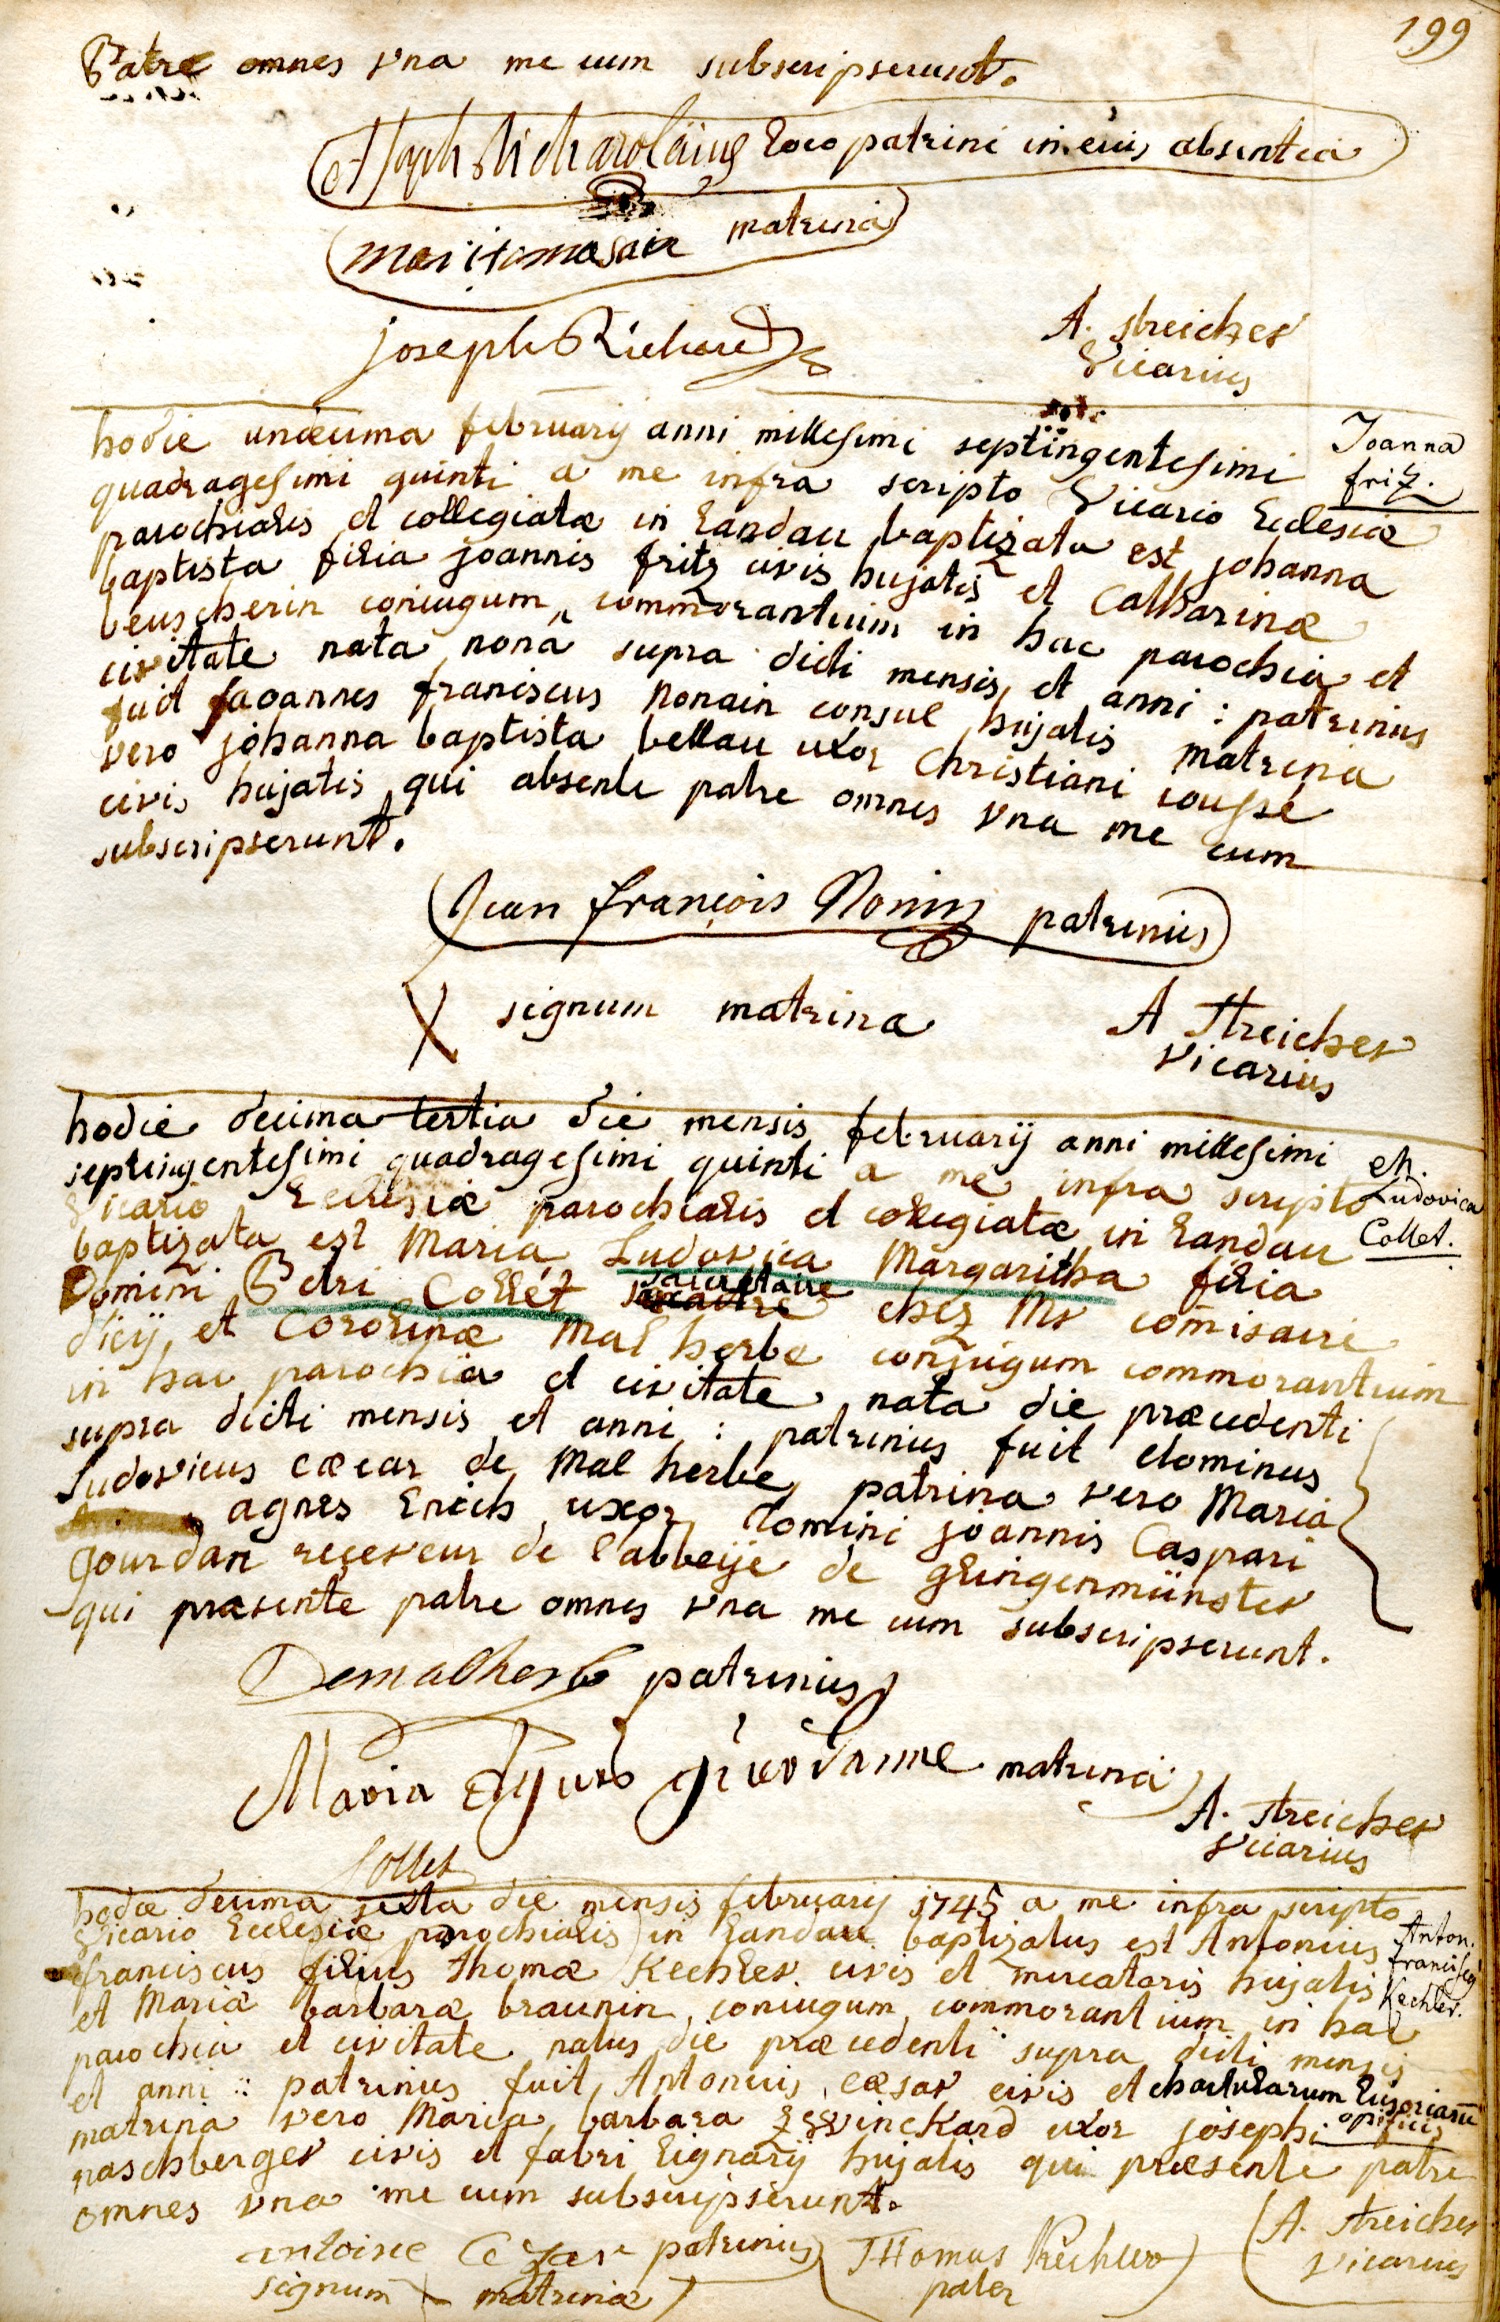 199
Patre omnes vna me cum subscripserunt.
loco patrini in eius absentia
matrina
joseph Richard
A. streicher
Vicarius
hodie undecima februarij anni millesimi septingentesimi
Joanna
friz.
quadragesimi quinti a me infra scripto Vicario Ecclesiæ
parochialis et collegiatæ in Landau baptizata est johanna
baptista filia joannis fritz civis hujatis et Catharinæ
beuscherin coniugum commorantium in hac parochia et
civitate nata nona supra dicti mensis et anni : patrinus
fuit joannes franciscus Nonain consul hujatis matrina
vero johanna baptista bellau uxor Christiani cousse
civis hujatis qui absente patre omnes vna me cum
subscripserunt.
Jean françois Nonin patrinus
X signum matrina
A Streicher
vicarius
hodie decima tertia die mensis februarij anni millesimi
septingentesimi quadragesimi quinti a me infra scripto
Ludovica
Collet.
Vicario Ecclesiæ parochialis et collegiatæ in Landau
baptizata est Maria Ludovica Margaritha filia
Domini Petri Collet secretaire chez Mr comisaire
d'icij et Cororinæ Mal herbe conjugum commorantium
in hac parochia et civitate nata die præcedenti
supra dicti mensis et anni : patrinus fuit dominus
Ludovicus cæcar de Mal herbe, patrina vero Maria
agnes Erich uxor Domini joannis Caspari
Jourdan receveur de l'abbeije de glingenmünster
qui præsente patre omnes vna me cum subscripserunt.
Demalherbe patrinus
Maria matrina
A. Streicher
Vicarius
Collet
hodie decima sexta die mensis februarij 1745 a me infra scripto
Vicario Ecclesiæ parochialis in Landau baptizatus est Antonius
Anton.
Kechler.
franciscus filius thomæ Kechler civis et mercatoris hujatis
et Mariæ barbaræ braunin coniugum commorantium in hac
parochia et civitate natus die præcedenti supra dicti mensis
et anni : patrinus fuit Antonius cæsar civis et chartularum lusoriarum
opificis
matrina vero Maria barbara zwinckard uxor josephi
raschberger civis et fabri lignarij hujatis qui præsente patre
omnes vna me cum subscripserunt.
antoine Cezar patrinus
signum matrinæ
Thomas Kechler
pater
A. Streicher
vicarius